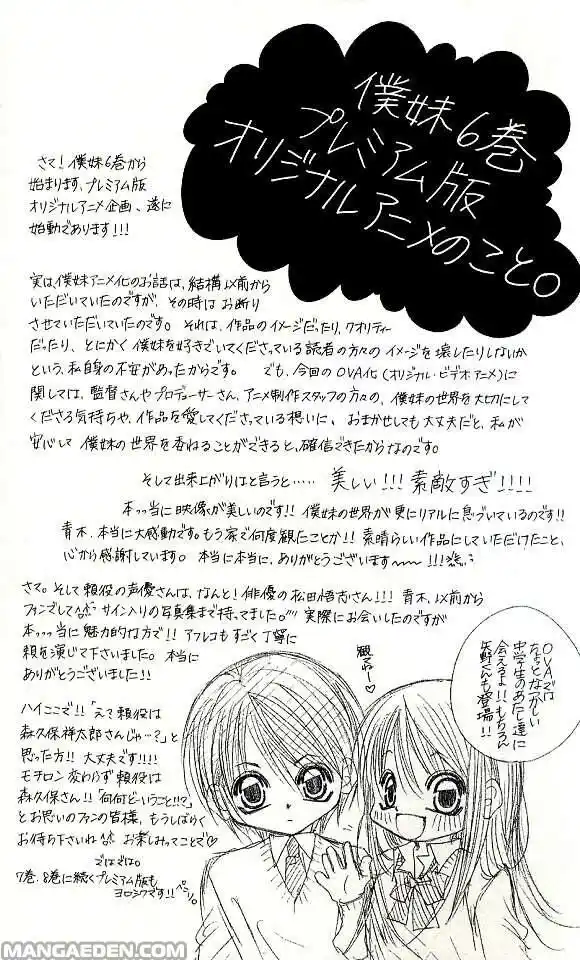 僕妹6巻
プレミアム版
オリジナルアニメのこと。
さて!僕妹6巻から
始まります、プレミアム版
オリジナルアニメ企画、遂に
始動であります!!!
実は、僕妹アニメ化のお話は、結構以前から
いただいていたのですが、その時はお断り
させていただいていたのです。それは、作品のイメージだったり、クオリティー
だったり、とにかく僕妹を好きでいてくださっている読者の方々のイメージを壊したりしないか
という、私自身の不安があったからです。でも、今回のOVA化(オリジナル・ビデオアニメ)に
関しては、監督さんやプロデューサーさん、アニメ制作スタッフの方々の、僕妹の世界を大切にして
くださる気持ちや、作品を愛してくださっている想いに、おまかせしても大丈夫だと、私が
安心して僕妹の世界を委ねることができると、確信できたからなのです。
そして出来上がりはと言うと・・・・・美しい!!!素敵すぎ!!!!
本っっ当に映像が美しいのです!!僕妹の世界が更にリアルに息づいているのです!!
青木、本当に大感動です。もう家で何度観たことか!!素晴らしい作品にしていただけたこと、
心から感謝しています。本当に本当に、ありがとうございます〜〜!!!
さて。そして頼役の声優さんは、なんと!俳優の松田悟志さん!!!青木、以前から
ファンでして サイン入りの写真集まで持ってました。実際にお会いしたのですが
本っっ当に魅力的な方で!!アフレコもすごく丁寧に
頼を演じて下さいました。本当に
ありがとうございました!!
ハイここで!!「えっ頼役は
森久保祥太郎さんじゃ…?」と
思った方!!大丈夫です!!!
モチロン変わらず頼役は
森久保さん!!「何何どーいうこと!!?」
とお思いのファンの皆様、もうしばらく
お待ち下さいね お楽しみってことで♡
ではでは。
7巻、8巻に続くプレミアム版も
ヨロシクです!!ペコリ。
観てネー♡
OVAでは
ちょっとなつかしい
中学生のあたし達に
会えるよ!!もちろん
矢野くんも登場!!
MANGAEDEN.COM